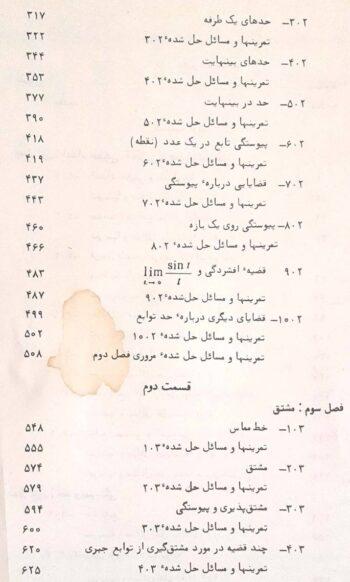 ۳۰۲ـ حدهای یک طرفه ۳۱۷
تمرینها و مسائل حل شدهٔ ۳۰۲ ۳۲۲
۴۰۲ـ حدهای بینهایت ۳۴۴
تمرینها و مسائل حل شدهٔ ۴۰۲ ۳۵۳
۵۰۲ـ حد در بینهایت ۳۷۷
تمرینها و مسائل حل شدهٔ ۵۰۲ ۳۹۰
۶۰۲ـ پیوستگی تابع در یک عدد (نقطه) ۴۱۸
تمرینها و مسائل حل شدهٔ ۶۰۲ ۴۱۹
۷۰۲ـ قضایایی دربارهٔ پیوستگی ۴۳۷
تمرینها و مسائل حل شدهٔ ۷۰۲ ۴۴۳
۸۰۲ـ پیوستگی روی یک بازه ۴۶۰
تمرینها و مسائل حل شدهٔ ۸۰۲ ۴۶۶
۹۰۲ قضیهٔ افشردگی و lim t→0 sin t / t ۴۸۳
تمرینها و مسائل حل‌شدهٔ ۹۰۲ ۴۸۷
۱۰۰۲ـ قضایای دیگری دربارهٔ حد توابع ۴۹۹
تمرینها و مسائل حل شدهٔ ۱۰۰۲ ۵۰۲
تمرینها و مسائل حل شدهٔ مروری فصل دوم ۵۰۸
قسمت دوم
فصل سوم : مشتق
۱۰۳ـ خط مماس ۵۴۸
تمرینها و مسائل حل شدهٔ ۱۰۳ ۵۵۵
۲۰۳ـ مشتق ۵۷۴
تمرینها و مسائل حل شدهٔ ۲۰۳ ۵۷۹
۳۰۳ـ مشتق‌پذیری و پیوستگی ۵۹۴
تمرینها و مسائل حل شدهٔ ۳۰۳ ۶۰۰
۴۰۳ـ چند قضیه در مورد مشتق‌گیری از توابع جبری ۶۲۰
تمرینها و مسائل حل شدهٔ ۴۰۳ ۶۲۵